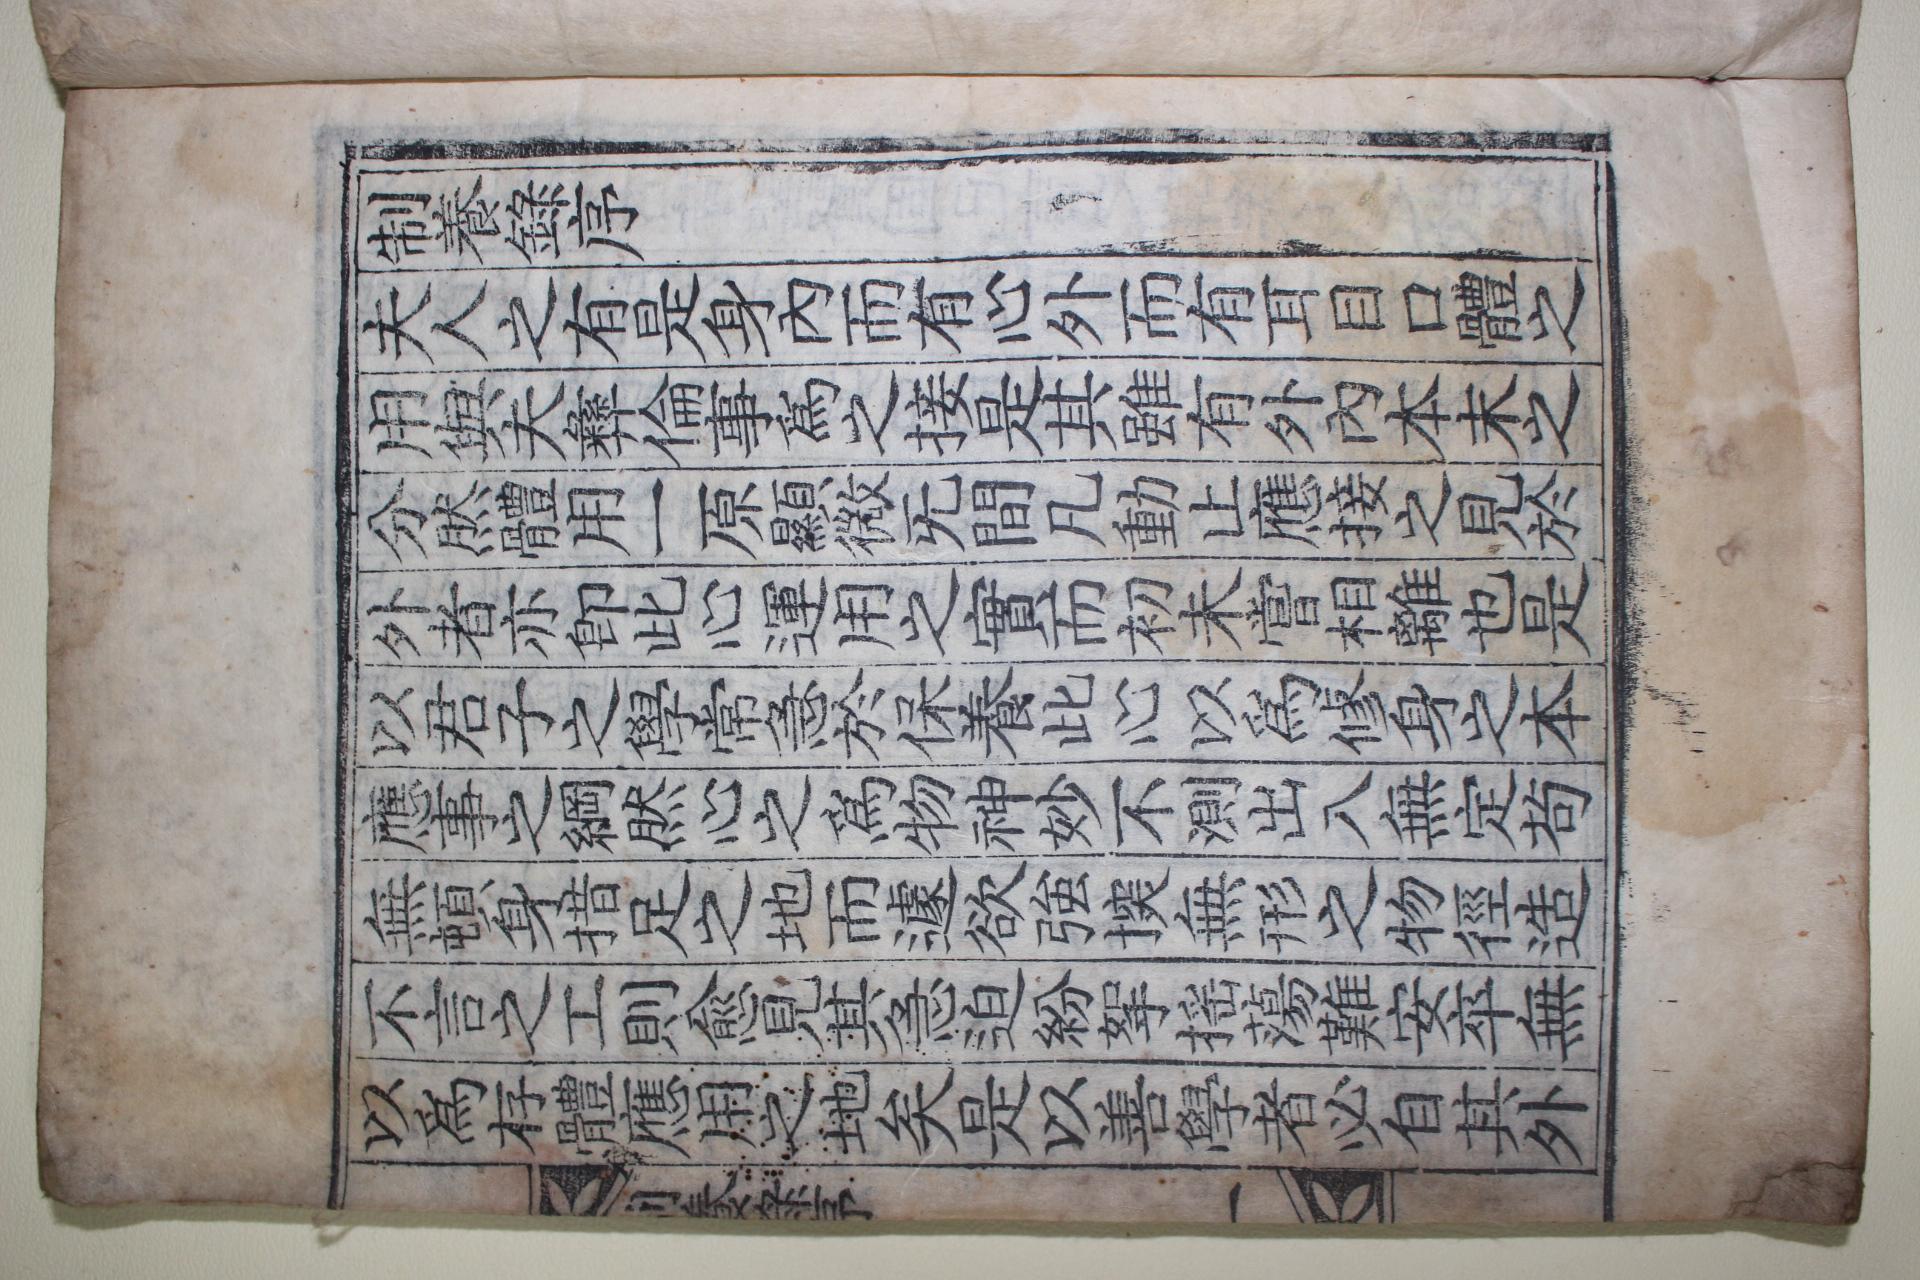 制養錄序
夫人之有是身內而有心外而有耳目口體之
用與夫彝倫事爲之接是其雖有外內本末之
分然體用一原顯微旡間凡動止應接之見於
外者亦卽此心運用之實而初未嘗相離也是
以君子之學常急於保養此心以爲修身之本
應事之綱然心之爲物神妙不測出入無定苟
無頓身措足之地而遽欲強揬無形之物徑造
不言之工則愈見其急迫紛挐搖蕩難安卒無
以爲存體應用之地矣是以善學者必自其外
制養錄序
一